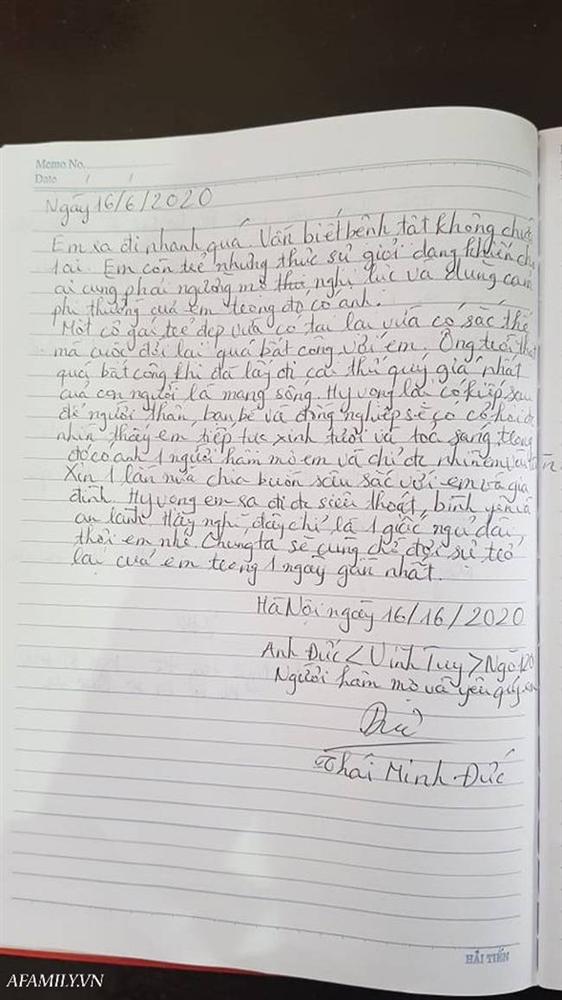 Memo No.
Date / /
Ngày 16/6/2020
Em ra đi nhanh quá. Vẫn biết bệnh tật không
lại. Em còn trẻ nhưng thực sự giỏi dang khiến
ai cũng phải ngưỡng mộ thôi nghị lực và dũng cảm
phi thường của em trong đó có anh.
Một cô gái trẻ đẹp vừa có tài lại vừa có sắc thế
mà cuộc đời lại quá bất công với em. Ông trời thật
quá bất công khi đã lấy đi cái thứ quý giá nhất
của con người là mạng sống. Hy vọng lại có kiếp sau
để người thân, bạn bè và đồng nghiệp sẽ có cơ hội đc
nhìn thấy em tiếp tục xinh tươi và toả sáng trong
đó có anh 1 người hâm mộ em và chỉ đc nhìn em
Xin 1 lần nữa chia buồn sâu sắc với em và gia
đình. Hy vọng em ra đi đc siêu thoát, bình yên và
an lành. Hãy nghĩ đây chỉ là 1 giấc ngủ dài,
thôi em nhé. Chúng ta sẽ cùng chờ đợi sự trở
lại của em trong 1 ngày gần nhất.
Hà Nội ngày 16/16/2020
Anh Đức < Vĩnh Tuy > Ngõ 120
Người hâm mộ và yêu quý em
Đức
Thái Minh Đức
HẢI TIẾN
AFAMILY.VN